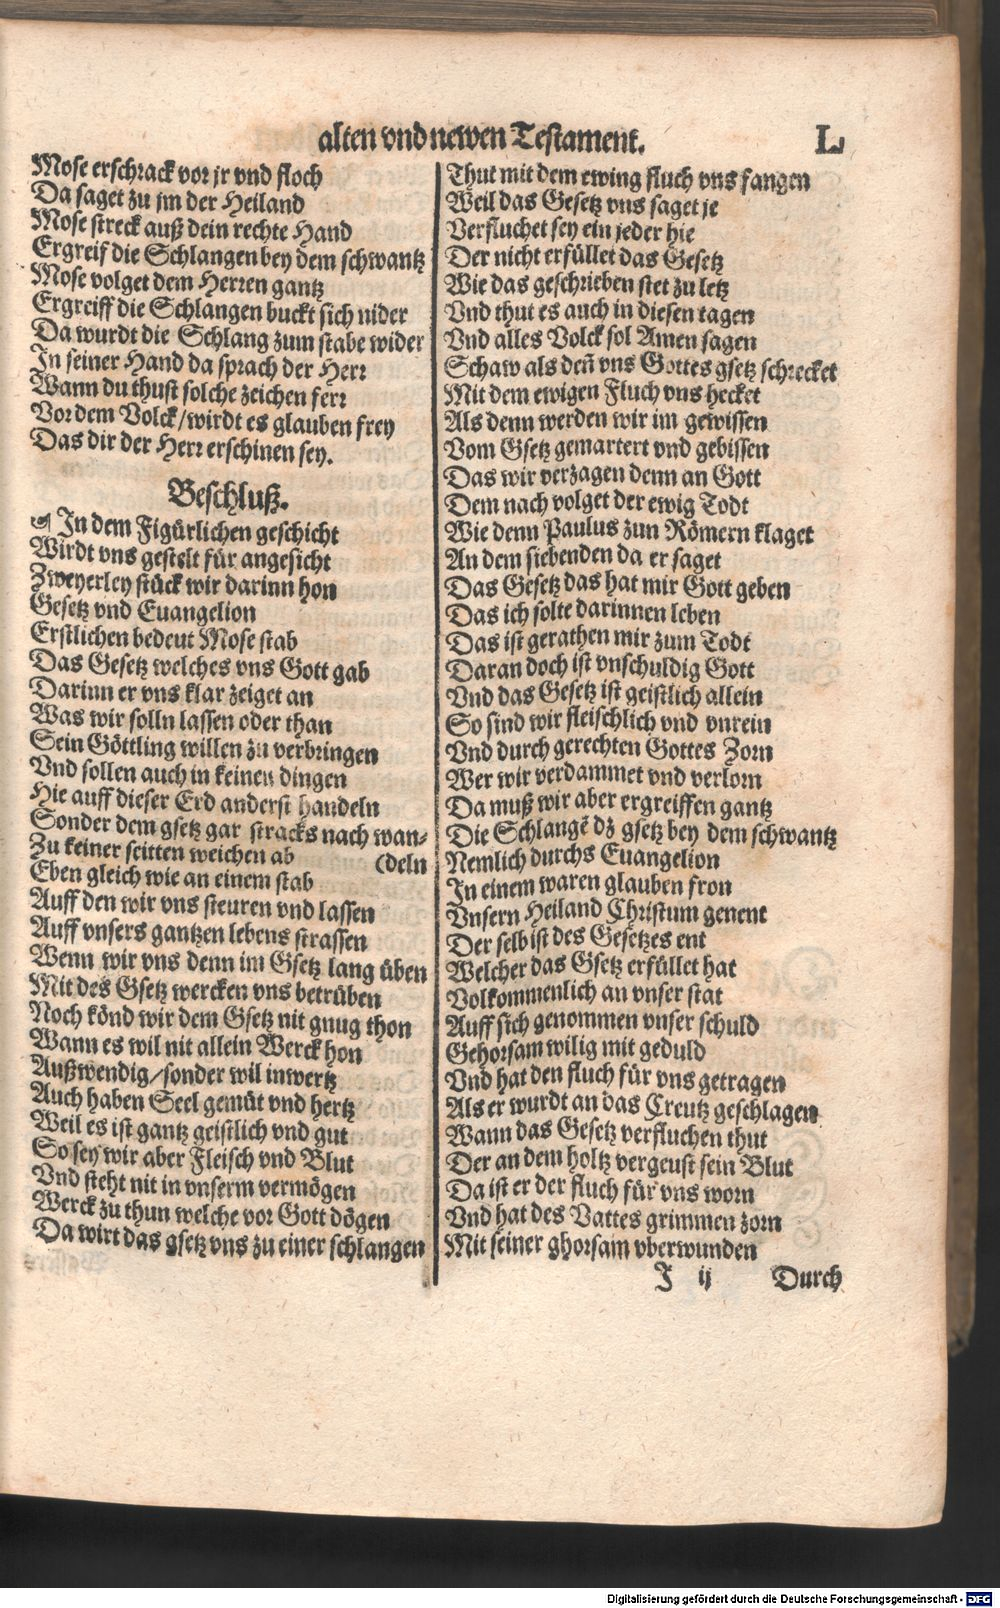 alten vnd newen Testament. L
Mose erschrack vor jr vnd floch
Da saget zu jm der Heiland
Mose streck auß dein rechte Hand
Ergreif die Schlangen bey dem schwantz
Mose volget dem Herren gantz
Ergreiff die Schlangen buckt sich nider
Da wurdt die Schlang zum stabe wider
In seiner Hand da sprach der Herr
Wann du thust solche zeichen ferr
Vor dem Volck/wirdt es glauben frey
Das dir der Herr erschinen sey.
Beschluß.
In dem Figürlichen geschicht
Wirdt vns gestelt für angesicht
Zweyerley stück wir darinn hon
Gesetz vnd Euangelion
Erstlichen bedeut Mose stab
Das Gesetz welches vns Gott gab
Darinn er vns klar zeiget an
Was wir solln lassen oder than
Sein Göttling willen zu verbringen
Vnd sollen auch in keinen dingen
Hie auff dieser Erd anderst handeln
Sonder dem gsetz gar stracks nach wan-
Zu keiner seitten weichen ab (deln
Eben gleich wie an einem stab
Auff den wir vns steuren vnd lassen
Auff vnsers gantzen lebens strassen
Wenn wir vns denn im Gsetz lang üben
Mit des Gsetz wercken vns betrüben
Noch könd wir dem Gsetz nit gnug thon
Wann es wil nit allein Werck hon
Außwendig/sonder wil inwertz
Auch haben Seel gemüt vnd hertz
Weil es ist gantz geistlich vnd gut
So sey wir aber Fleisch vnd Blut
Vnd steht nit in vnserm vermögen
Werck zu thun welche vor Gott dögen
Da wirt das gsetz vns zu einer schlangen
Thut mit dem ewing fluch vns fangen
Weil das Gesetz vns saget je
Verfluchet sey ein jeder hie
Der nicht erfüllet das Gesetz
Wie das geschrieben stet zu letz
Vnd thut es auch in diesen tagen
Vnd alles Volck sol Amen sagen
Schaw als deñ vns Gottes gsetz schrecket
Mit dem ewigen Fluch vns hecket
Als denn werden wir im gewissen
Vom Gsetz gemartert vnd gebissen
Das wir verzagen denn an Gott
Dem nach volget der ewig Todt
Wie denn Paulus zun Römern klaget
An dem siebenden da er saget
Das Gesetz das hat mir Gott geben
Das ich solte darinnen leben
Das ist gerathen mir zum Todt
Daran doch ist vnschuldig Gott
Vnd das Gesetz ist geistlich allein
So sind wir fleischlich vnd vnrein
Vnd durch gerechten Gottes Zorn
Wer wir verdammet vnd verlorn
Da muß wir aber ergreiffen gantz
Die Schlangẽ dz gsetz bey dem schwantz
Nemlich durchs Euangelion
In einem waren glauben fron
Vnsern Heiland Christum genent
Der selb ist des Gesetzes ent
Welcher das Gsetz erfüllet hat
Volkommenlich an vnser stat
Auff sich genommen vnser schuld
Gehorsam wilig mit geduld
Vnd hat den fluch für vns getragen
Als er wurdt an das Creutz geschlagen
Wann das Gesetz verfluchen thut
Der an dem holtz vergeust sein Blut
Da ist er der fluch für vns worn
Vnd hat des Vattes grimmen zorn
Mit seiner ghorsam vberwunden
J ij Durch
Digitalisierung gefördert durch die Deutsche Forschungsgemeinschaft - DFG